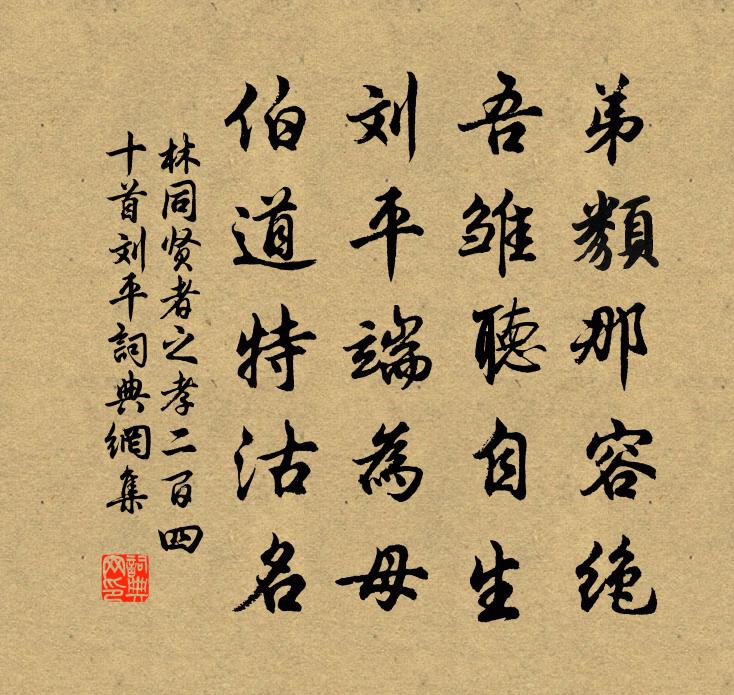 弟類那容绝
吾雏聽自生
刘平端為母
伯道特沽名
林同贤者之孝二百四
十首刘平詞典網集
詞典网印